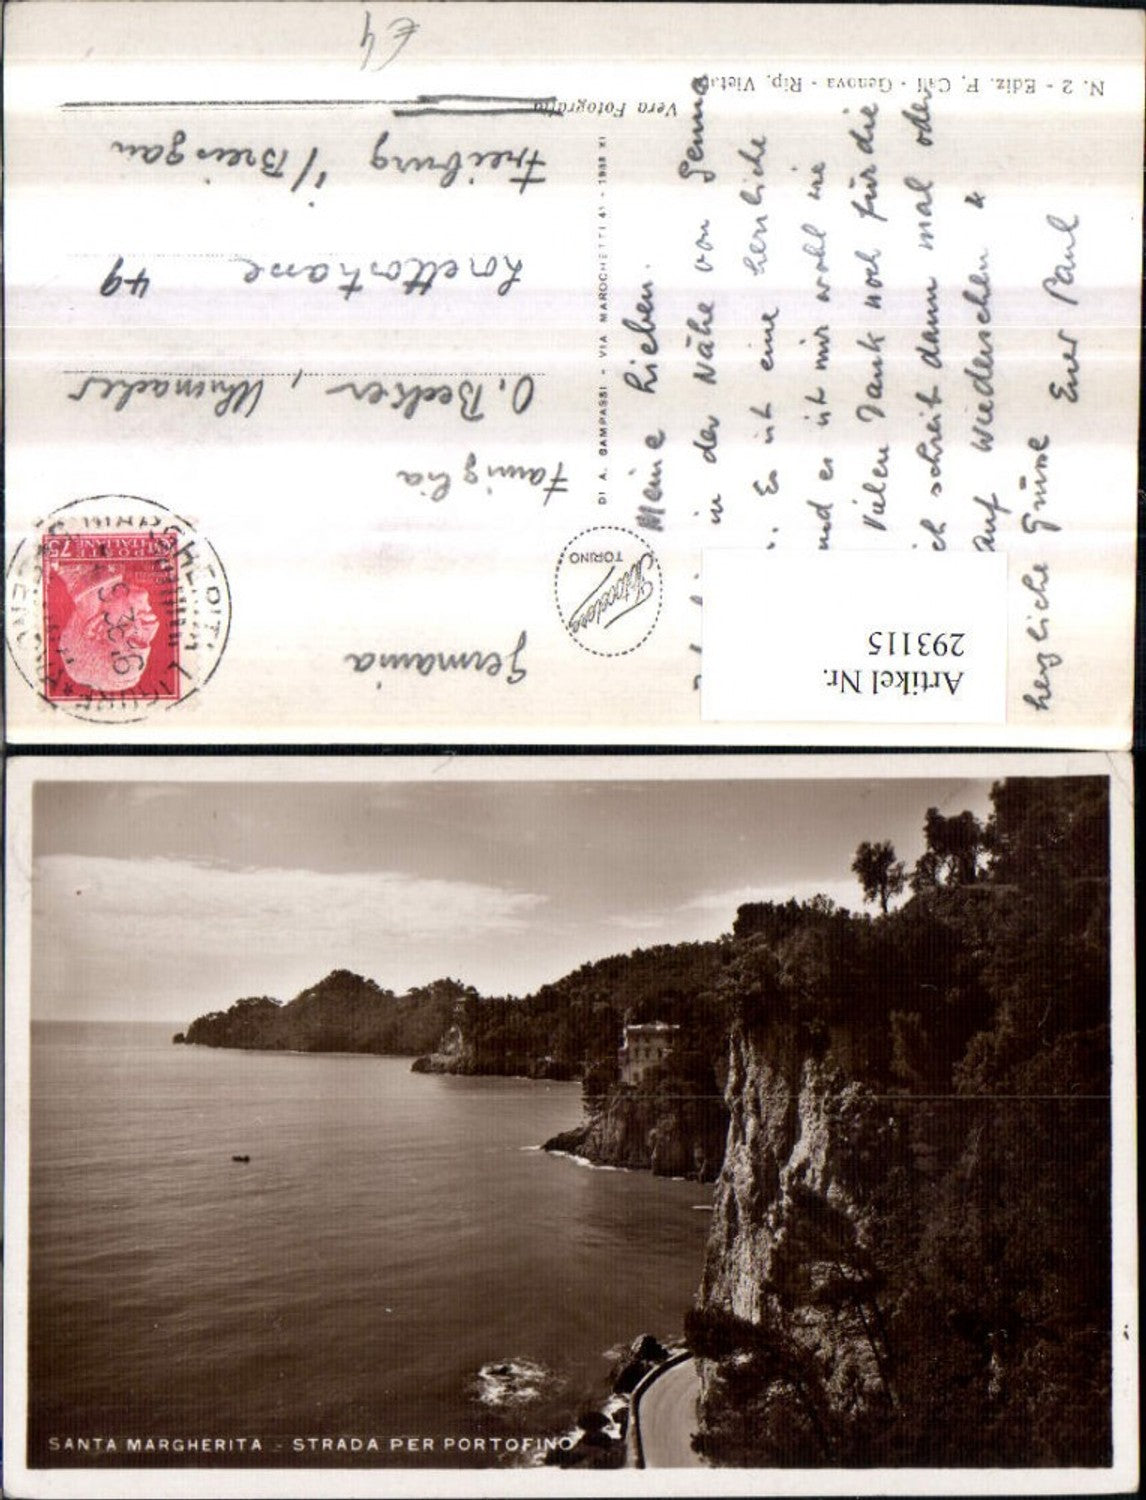 €4
N. 2 - Ediz. F. Calì - Genova - Rip. Vietata
Vera Fotografia
DI A. CAMPASSI - VIA MAROCHETTI 41 - 1938 XI
Fotocelere
TORINO
POSTE
ITALIANE
75
Germania
Famiglia
O. Becker, Uhrmacher
Lorettostrasse 49
Freiburg i/Breisgau
Meine Lieben.
in der Nähe von Genua
Es ist eine herrliche
und es ist mir wohl wie
Vielen Dank noch für die
ch schreibt dann mal oder
Auf Wiedersehen u
herzliche Grüsse Euer Paul
Artikel Nr.
293115
SANTA MARGHERITA - STRADA PER PORTOFINO